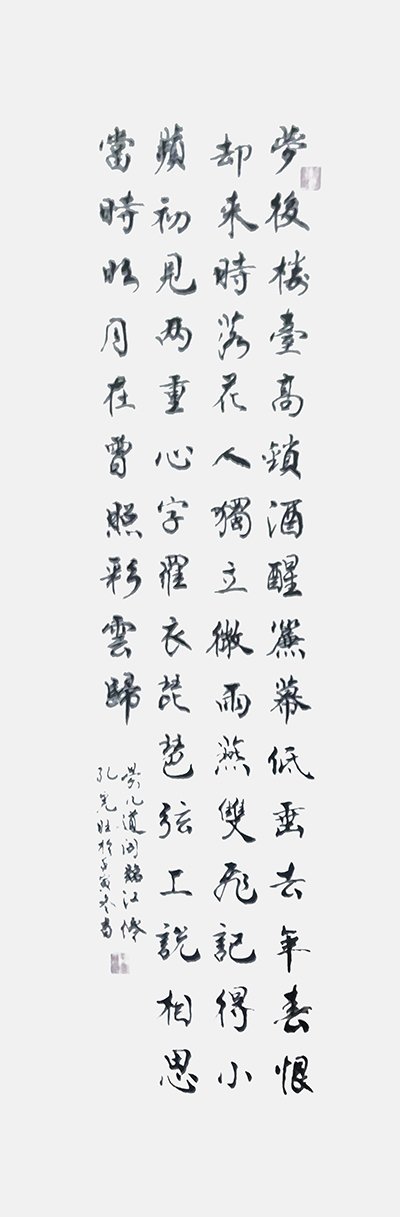 夢後楼臺高鎖酒醒簾幕低垂去年春恨
却来時落花人獨立微雨燕雙飛記得小
蘋初見两重心字羅衣琵琶弦上説相思
當時明月在曾照彩雲歸
晏几道詞臨江仙
孔於壬寅冬